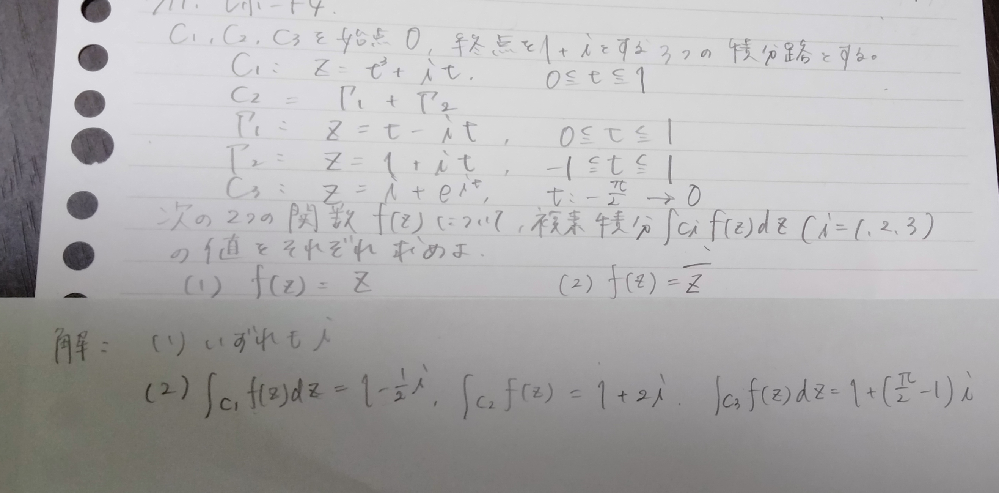 C₁, C₂, C₃を始点0, 終点を1+iとする3つの積分路とする。
C₁: z = t³ + it. 0≦t≦1
C₂ = Γ₁ + Γ₂
Γ₁: z = t - it, 0≦t≦1
Γ₂: z = 1 + it, -1≦t≦1
C₃: z = i + e^{it}, t: -π/2 → 0
次の2つの関数 f(z) について, 複素積分∫ci f(z)dz (i=1,2,3)
の値をそれぞれ求めよ.
(1) f(z) = z (2) f(z) = z̅
解: (1) いずれも i
(2) ∫c₁ f(z)dz = 1 - 1/2 i, ∫c₂ f(z) = 1+2i. ∫c₃ f(z)dz = 1+(π/2 -1)i